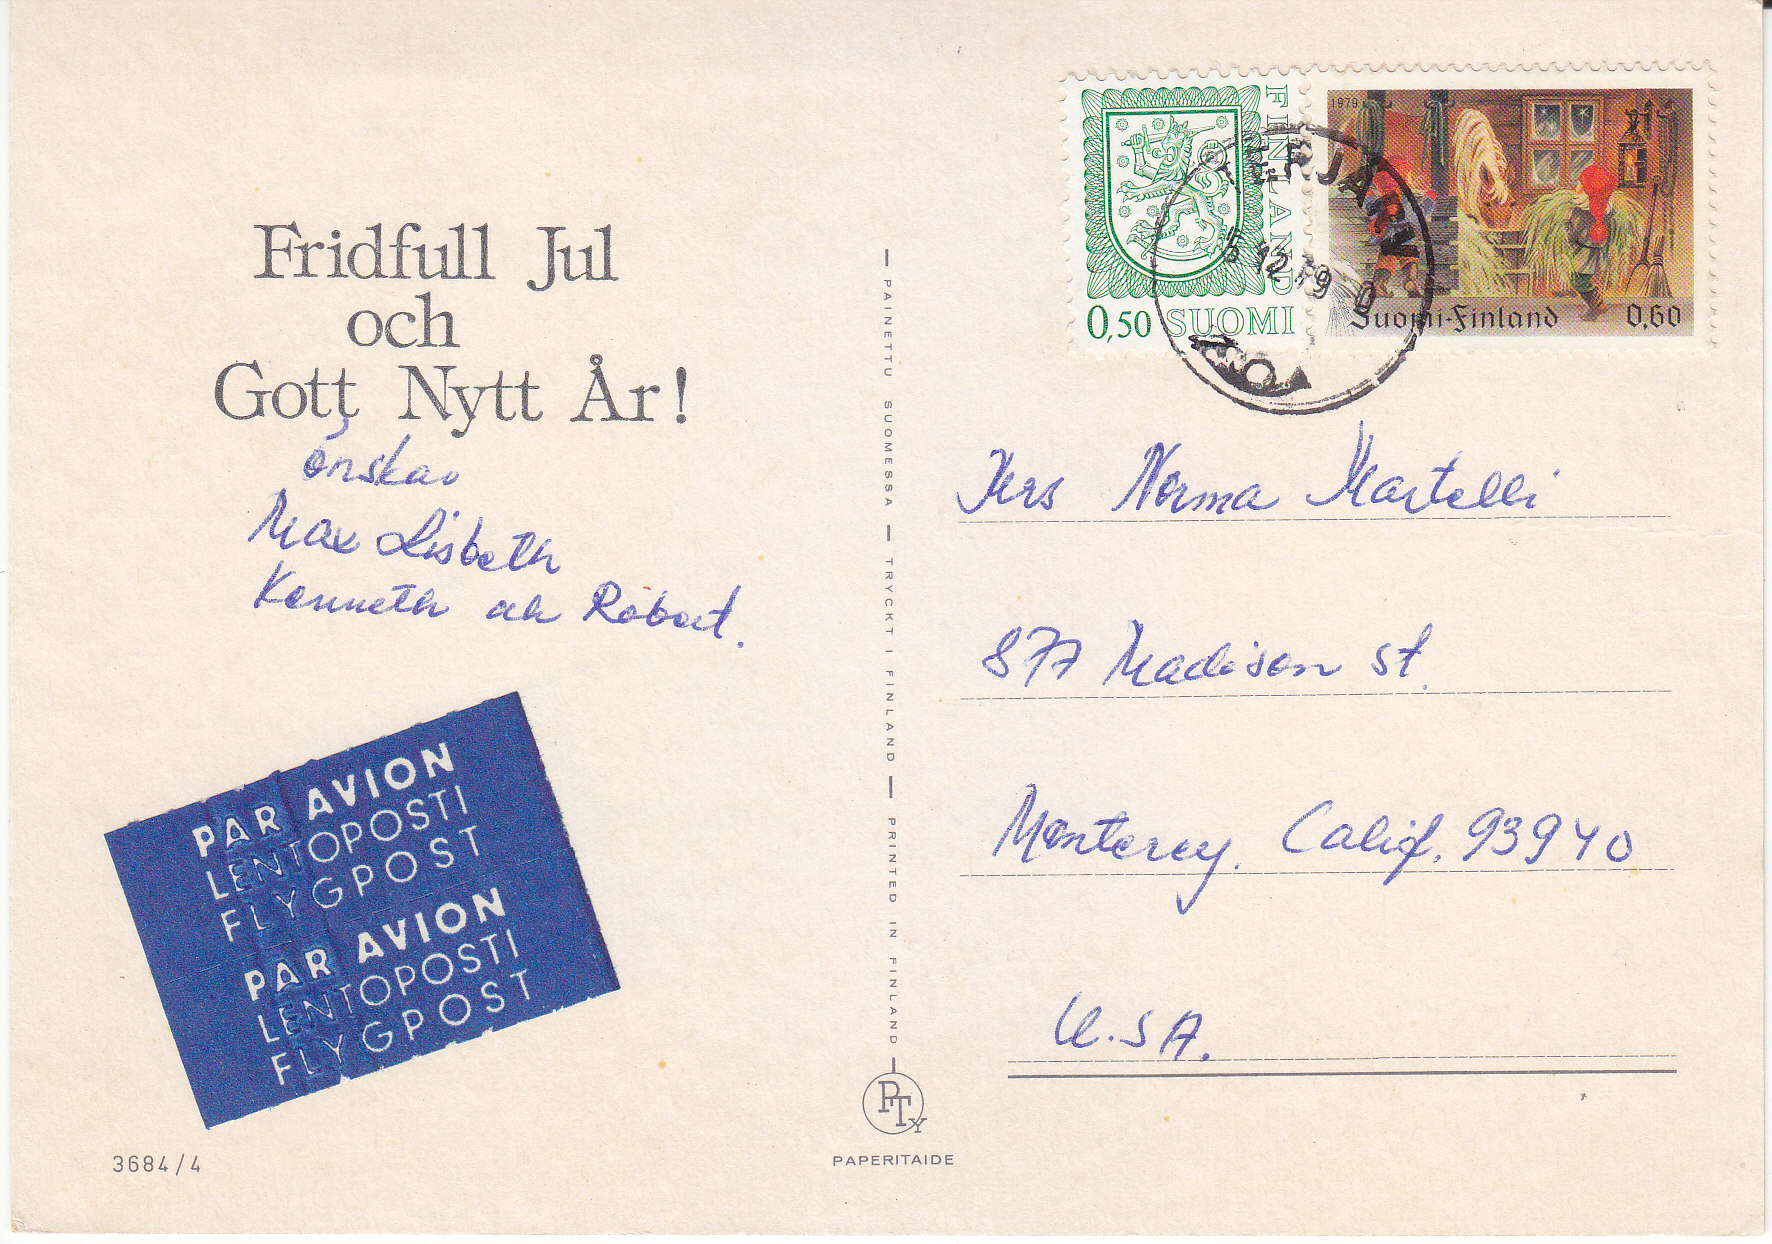 Fridfull Jul
och
Gott Nytt År!
önskar
Max Lisbeth
Kenneth och Robert.
PAR AVION
LENTOPOSTI
FLYGPOST
PAR AVION
LENTOPOSTI
FLYGPOST
3684/4
PAINETTU SUOMESSA — TRYCKT I FINLAND — PRINTED IN FINLAND
PTY
PAPERITAIDE
FINLAND
0,50 SUOMI
1979
Suomi-Finland 0,60
5.12.79
Mrs Norma Martelli
877 Madison St.
Monterey. Calif. 93940
U.S.A.